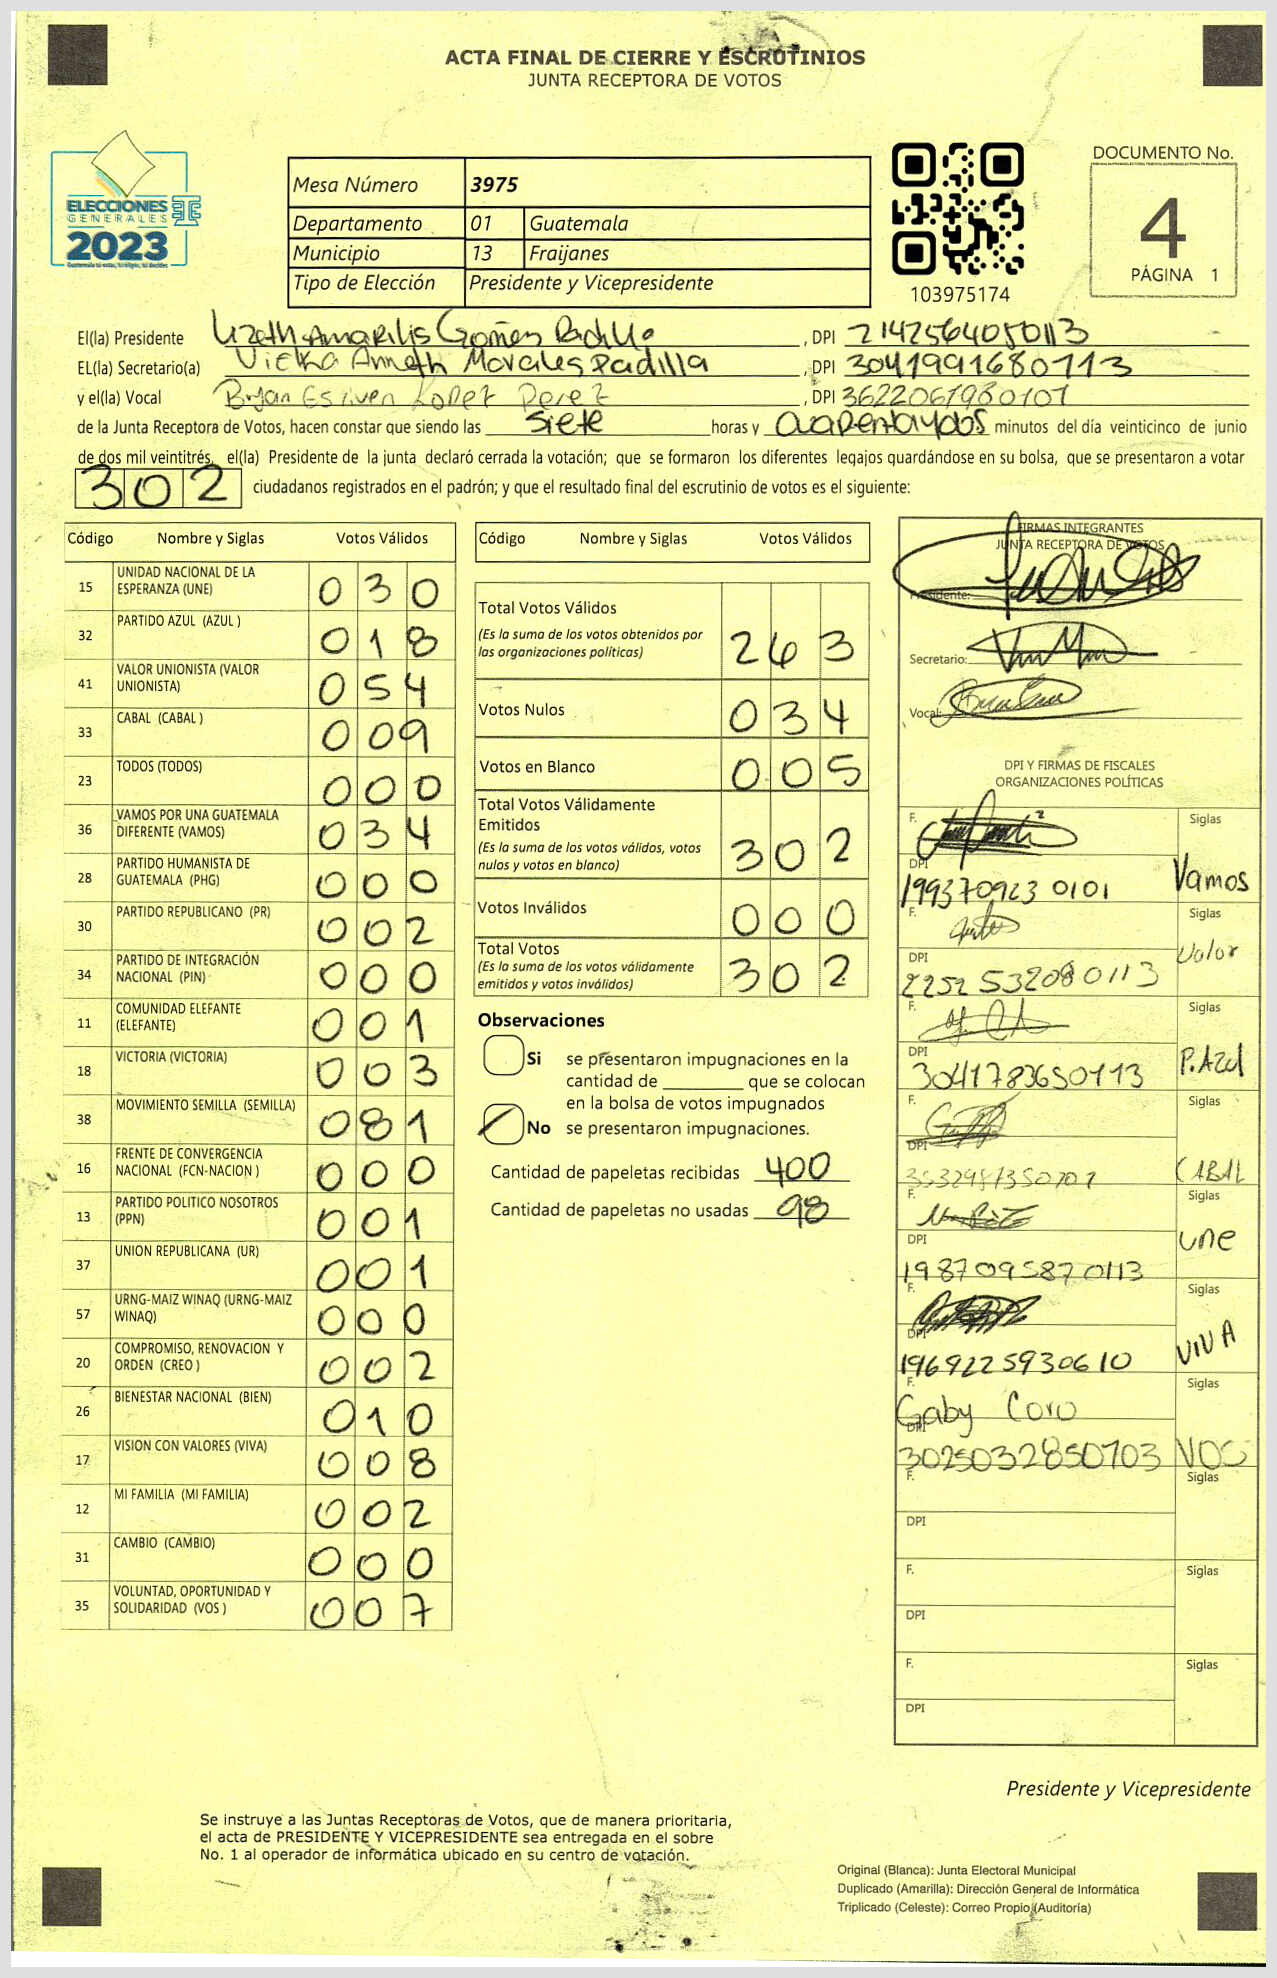 ACTA FINAL DE CIERRE Y ESCRUTINIOS
JUNTA RECEPTORA DE VOTOS
ELECCIONES
GENERALES
2023
Mesa Número 3975
Departamento 01 Guatemala
Municipio 13 Fraijanes
Tipo de Elección Presidente y Vicepresidente
103975174
DOCUMENTO No.
4
PÁGINA 1
El(la) Presidente Lizeth Amarilis Gómez Padilla, DPI 2142564050113
EL(la) Secretario(a) Vielka Anneth Morales Padilla, DPI 3041991680113
y el(la) Vocal Bryan Estiven Lopez Perez, DPI 3622061980101
de la Junta Receptora de Votos, hacen constar que siendo las siete horas y cuarentaydos minutos del día veinticinco de junio
de dos mil veintitrés, el(la) Presidente de la junta declaró cerrada la votación; que se formaron los diferentes legajos quardándose en su bolsa, que se presentaron a votar
302 ciudadanos registrados en el padrón; y que el resultado final del escrutinio de votos es el siguiente:
Código Nombre y Siglas Votos Válidos
15 UNIDAD NACIONAL DE LA ESPERANZA (UNE) 030
32 PARTIDO AZUL (AZUL ) 018
41 VALOR UNIONISTA (VALOR UNIONISTA) 054
33 CABAL (CABAL ) 009
23 TODOS (TODOS) 000
36 VAMOS POR UNA GUATEMALA DIFERENTE (VAMOS) 034
28 PARTIDO HUMANISTA DE GUATEMALA (PHG) 000
30 PARTIDO REPUBLICANO (PR) 002
34 PARTIDO DE INTEGRACIÓN NACIONAL (PIN) 000
11 COMUNIDAD ELEFANTE (ELEFANTE) 001
18 VICTORIA (VICTORIA) 003
38 MOVIMIENTO SEMILLA (SEMILLA) 081
16 FRENTE DE CONVERGENCIA NACIONAL (FCN-NACION ) 000
13 PARTIDO POLITICO NOSOTROS (PPN) 001
37 UNION REPUBLICANA (UR) 001
57 URNG-MAIZ WINAQ (URNG-MAIZ WINAQ) 000
20 COMPROMISO, RENOVACION Y ORDEN (CREO ) 002
26 BIENESTAR NACIONAL (BIEN) 010
17 VISION CON VALORES (VIVA) 008
12 MI FAMILIA (MI FAMILIA) 002
31 CAMBIO (CAMBIO) 000
35 VOLUNTAD, OPORTUNIDAD Y SOLIDARIDAD (VOS ) 007
Código Nombre y Siglas Votos Válidos
Total Votos Válidos
(Es la suma de los votos obtenidos por
las organizaciones políticas) 263
Votos Nulos 034
Votos en Blanco 005
Total Votos Válidamente
Emitidos
(Es la suma de los votos válidos, votos
nulos y votos en blanco) 302
Votos Inválidos 000
Total Votos
(Es la suma de los votos válidamente
emitidos y votos inválidos) 302
Observaciones
Si se presentaron impugnaciones en la
cantidad de ________ que se colocan
en la bolsa de votos impugnados
No se presentaron impugnaciones.
Cantidad de papeletas recibidas 400
Cantidad de papeletas no usadas 98
FIRMAS INTEGRANTES
JUNTA RECEPTORA DE VOTOS
Presidente:
Secretario:
Vocal:
DPI Y FIRMAS DE FISCALES
ORGANIZACIONES POLÍTICAS
F. Siglas
DPI Vamos
199370923 0101
F. Siglas
DPI Valor
2252 532080113
F. Siglas
DPI P.Azul
3041783650113
F. Siglas
DPI CABAL
F. Siglas
DPI une
1987095870113
F. Siglas
DPI VIVA
1969225930610
F. Gaby Coro Siglas
DPI
3025032850703 VOS
F. Siglas
DPI
F. Siglas
DPI
F. Siglas
DPI
Presidente y Vicepresidente
Se instruye a las Juntas Receptoras de Votos, que de manera prioritaria,
el acta de PRESIDENTE Y VICEPRESIDENTE sea entregada en el sobre
No. 1 al operador de informática ubicado en su centro de votación.
Original (Blanca): Junta Electoral Municipal
Duplicado (Amarilla): Dirección General de Informática
Triplicado (Celeste): Correo Propio (Auditoría)